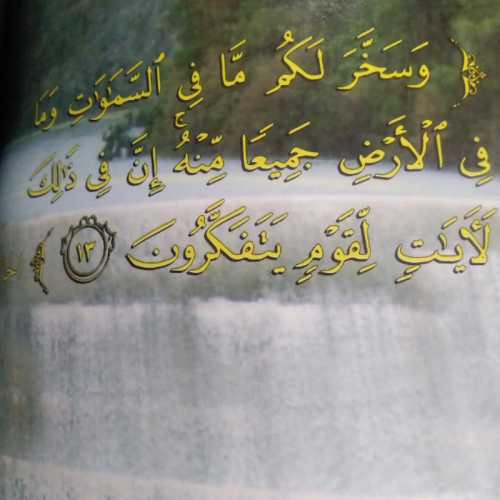 ﴿ وَسَخَّرَ لَكُم مَّا فِي ٱلسَّمَٰوَٰتِ وَمَا
فِي ٱلْأَرْضِ جَمِيعًا مِّنْهُ ۚ إِنَّ فِي ذَٰلِكَ
لَـَٔايَٰتٍ لِّقَوْمٍ يَتَفَكَّرُونَ ١٣ ﴾